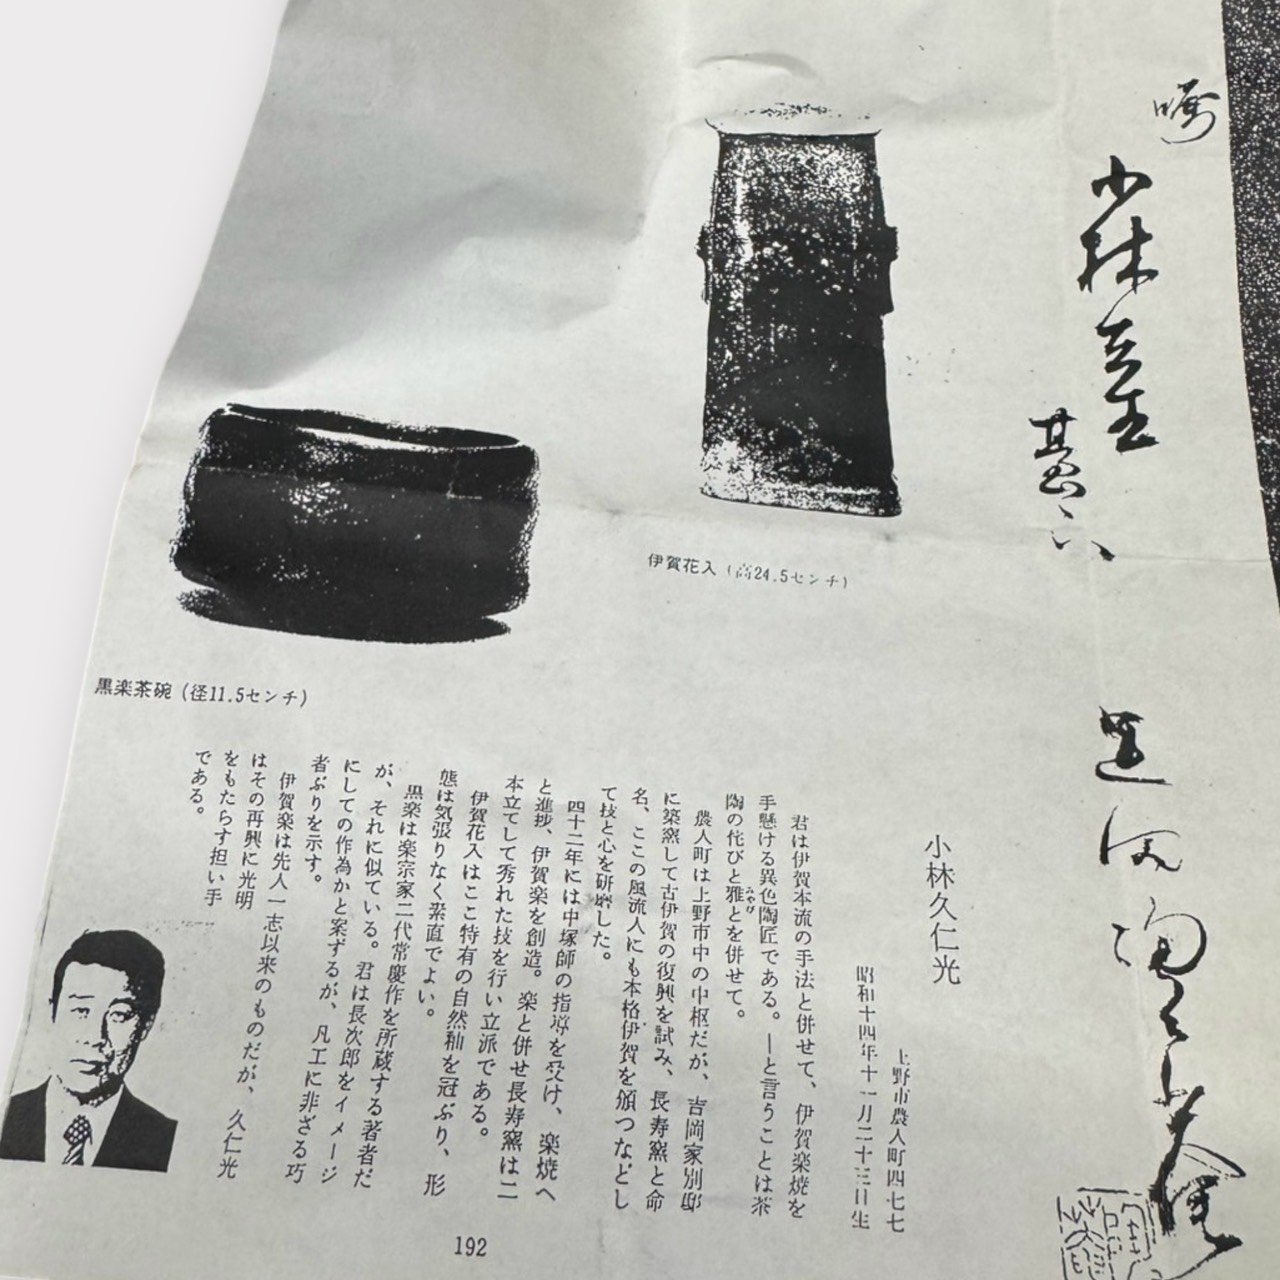 嘱
小林
伊賀花入（高24.5センチ）
黒楽茶碗（径11.5センチ）
小林久仁光
上野市農人町四七七
昭和十四年十一月二十三日生
君は伊賀本流の手法と併せて、伊賀楽焼を
手懸ける異色陶匠である。ーと言うことは茶
陶の侘びと雅とを併せて。
みやび
農人町は上野市中の中枢だが、吉岡家別邸
に築窯して古伊賀の復興を試み、長寿窯と命
名、ここの風流人にも本格伊賀を頒つなどし
て技と心を研磨した。
四十二年には中塚師の指導を受け、楽焼へ
と進捗、伊賀楽を創造。楽と併せ長寿窯は二
本立てして秀れた技を行い立派である。
伊賀花入はここ特有の自然釉を冠ぶり、形
態は気張りなく素直でよい。
黒楽は楽宗家二代常慶作を所蔵する著者だ
が、それに似ている。君は長次郎をイメージ
にしての作為かと案ずるが、凡工に非ざる巧
者ぶりを示す。
伊賀楽は先人一志以来のものだが、久仁光
はその再興に光明
をもたらす担い手
である。
192